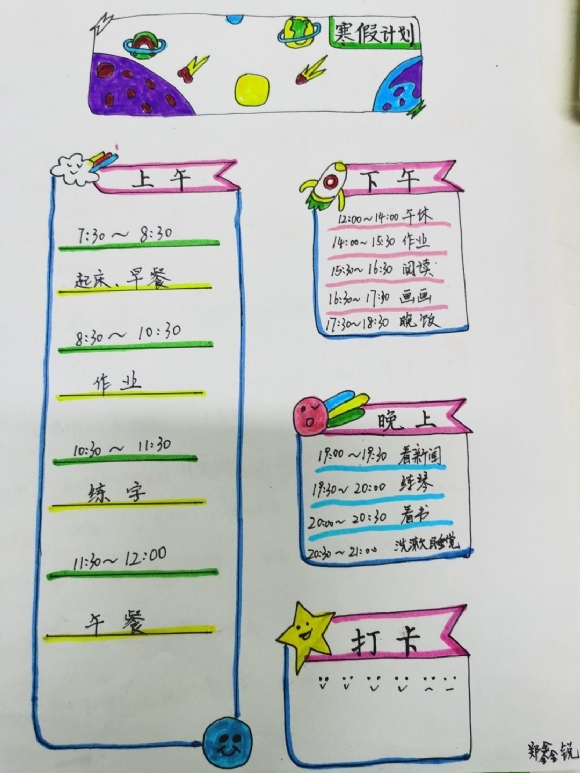 寒假计划
上午
7:30～8:30
起床、早餐
8:30～10:30
作业
10:30～11:30
练字
11:30～12:00
午餐
下午
12:00～14:00 午休
14:00～15:30 作业
15:30～16:30 阅读
16:30～17:30 画画
17:30～18:30 晚饭
晚上
19:00～19:30 看新闻
19:30～20:00 练琴
20:00～20:30 看书
20:30～21:00 洗漱睡觉
打卡
郑鑫锐